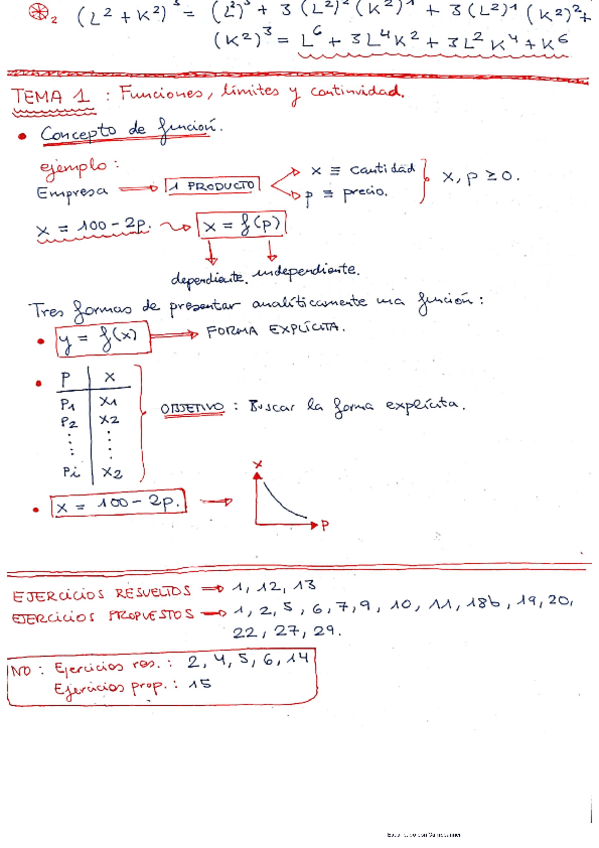 ⊛₂ (L² + K²)³ = (L²)³ + 3 (L²)² (K²)¹ + 3 (L²)¹ (K²)² +
(K²)³ = L⁶ + 3L⁴K² + 3L²K⁴ + K⁶
TEMA 1 : Funciones, límites y continuidad.
• Concepto de función.
ejemplo :
Empresa → 1 PRODUCTO
x ≡ cantidad
p ≡ precio.
x, p ≥ 0.
x = 100 - 2p. → x = f(p)
dependiente. independiente.
Tres formas de presentar analíticamente una función :
• y = f(x) → FORMA EXPLÍCITA.
• P | X
P1 | X1
P2 | X2
⋮ | ⋮
Pi | X2
OBJETIVO : Buscar la forma explícita.
• x = 100 - 2p. →
x
P
EJERCICIOS RESUELTOS → 1, 12, 13
EJERCICIOS PROPUESTOS → 1, 2, 5, 6, 7, 9, 10, 11, 18b, 19, 20,
22, 27, 29.
NO : Ejercicios res. : 2, 4, 5, 6, 14
Ejercicios prop. : 15